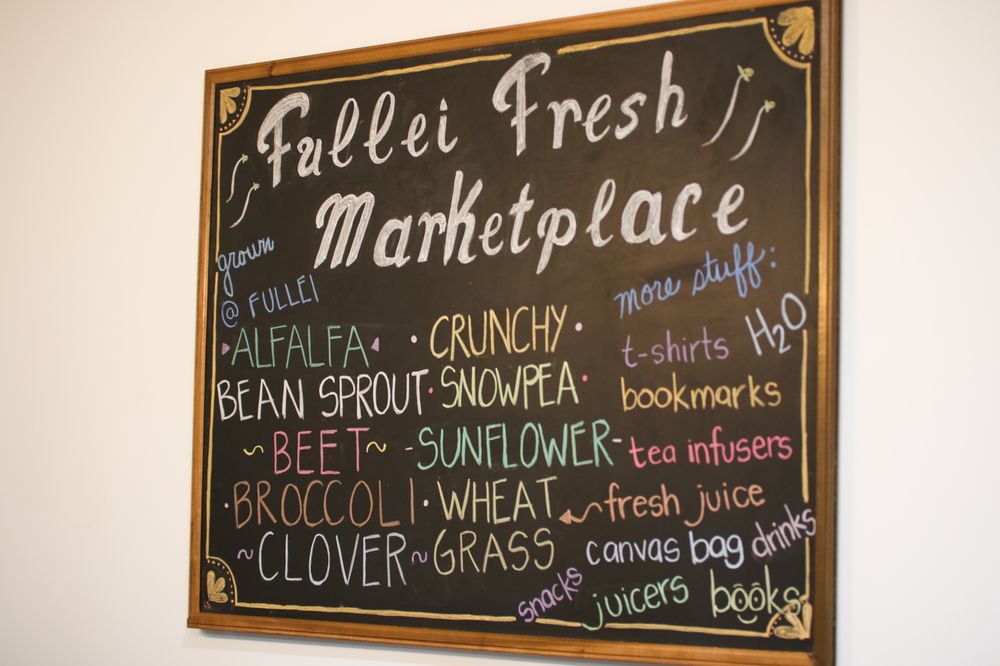 Fullei Fresh
Marketplace
grown
@ FULLEI
ALFALFA
BEAN SPROUT
~ BEET ~
BROCCOLI
~ CLOVER ~
CRUNCHY
SNOWPEA
SUNFLOWER
WHEAT
GRASS
more stuff:
t-shirts H2O
bookmarks
tea infusers
fresh juice
canvas bag drinks
snacks juicers books